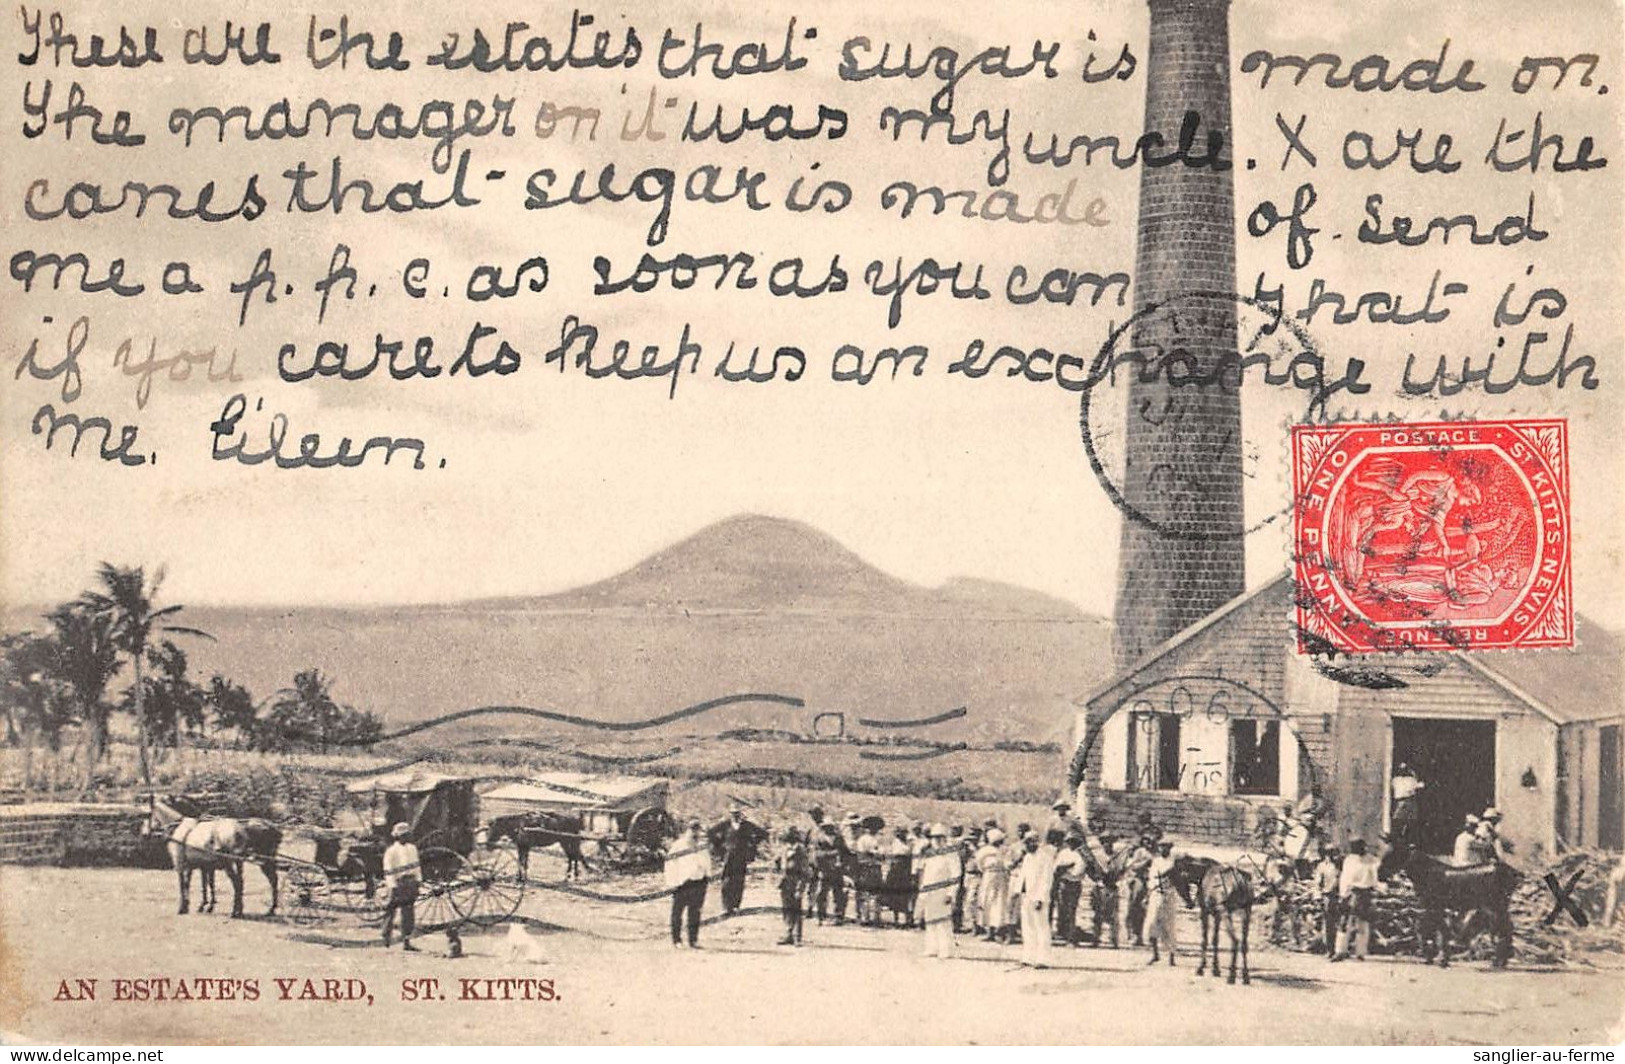 These are the estates that sugar is made on.
The manager on it was my uncle. X are the
canes that sugar is made of. Send
me a p. p. c. as soon as you can That is
if you care to keep us an exchange with
me. Eileen.
POSTAGE
ST KITTS-NEVIS
ONE PENNY
REVENUE
X
AN ESTATE'S YARD, ST. KITTS.
delcampe.net
sanglier-au-ferme